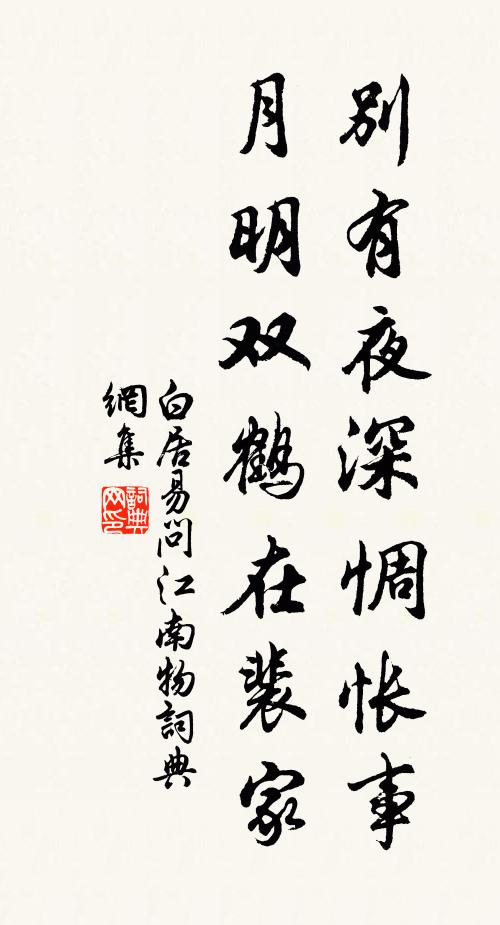 别有夜深惆怅事
月明双鹤在裴家
白居易问江南物詞典
網集
詞典
网印